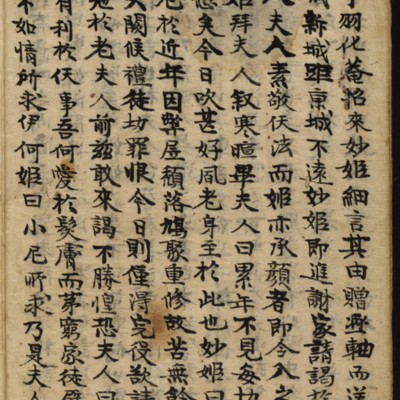 羽化菴怡來妙姬細言其由贈軸而送
城新城距京城不遠妙姬即進謝家請謁於
夫人素敬佛法而姬亦承顔者即今入之
姬拜夫人叙寒暄畢夫人曰累年不見每切
悵矣今日吹甚好風老身至於此也妙姬曰
尼於近年因弊屋頹落鳩聚重修故苦無餘
久闕候禮徒切罪恨今日則僅得完役欲請
於老夫人前玆敢來謁不勝惶恐夫人曰
有利於佛事吾何愛於髮膚而茅窮家徒
不如情所求伊何姬曰小尼所求乃是夫人